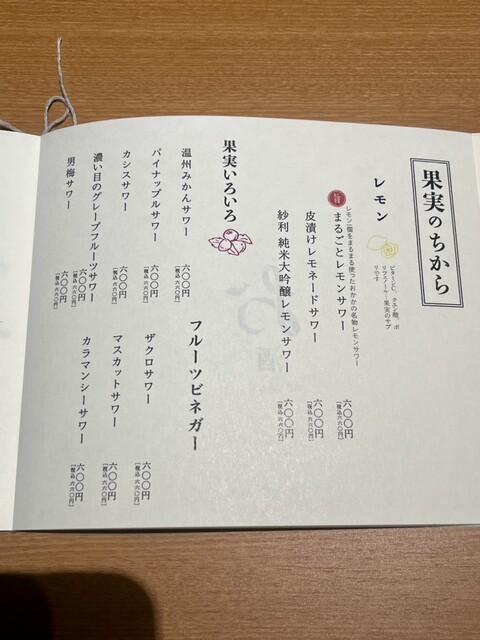 果実のちから
レモン
ビタミンC、クエン酸、ポ
リフェノール…果実のサプ
リです
レモン一個をまるまる使ったおかかの名物レモンサワー
まるごとレモンサワー
六〇〇円
［税込 六六〇円］
皮漬けレモネードサワー
六〇〇円
［税込 六六〇円］
紗利 純米大吟醸レモンサワー
六〇〇円
［税込 六六〇円］
果実いろいろ
温州みかんサワー
六〇〇円
［税込 六六〇円］
パイナップルサワー
六〇〇円
［税込 六六〇円］
カシスサワー
六〇〇円
［税込 六六〇円］
濃い目のグレープフルーツサワー
六〇〇円
［税込 六六〇円］
男梅サワー
六〇〇円
［税込 六六〇円］
フルーツビネガー
ザクロサワー
六〇〇円
［税込 六六〇円］
マスカットサワー
六〇〇円
［税込 六六〇円］
カラマンシーサワー
六〇〇円
［税込 六六〇円］